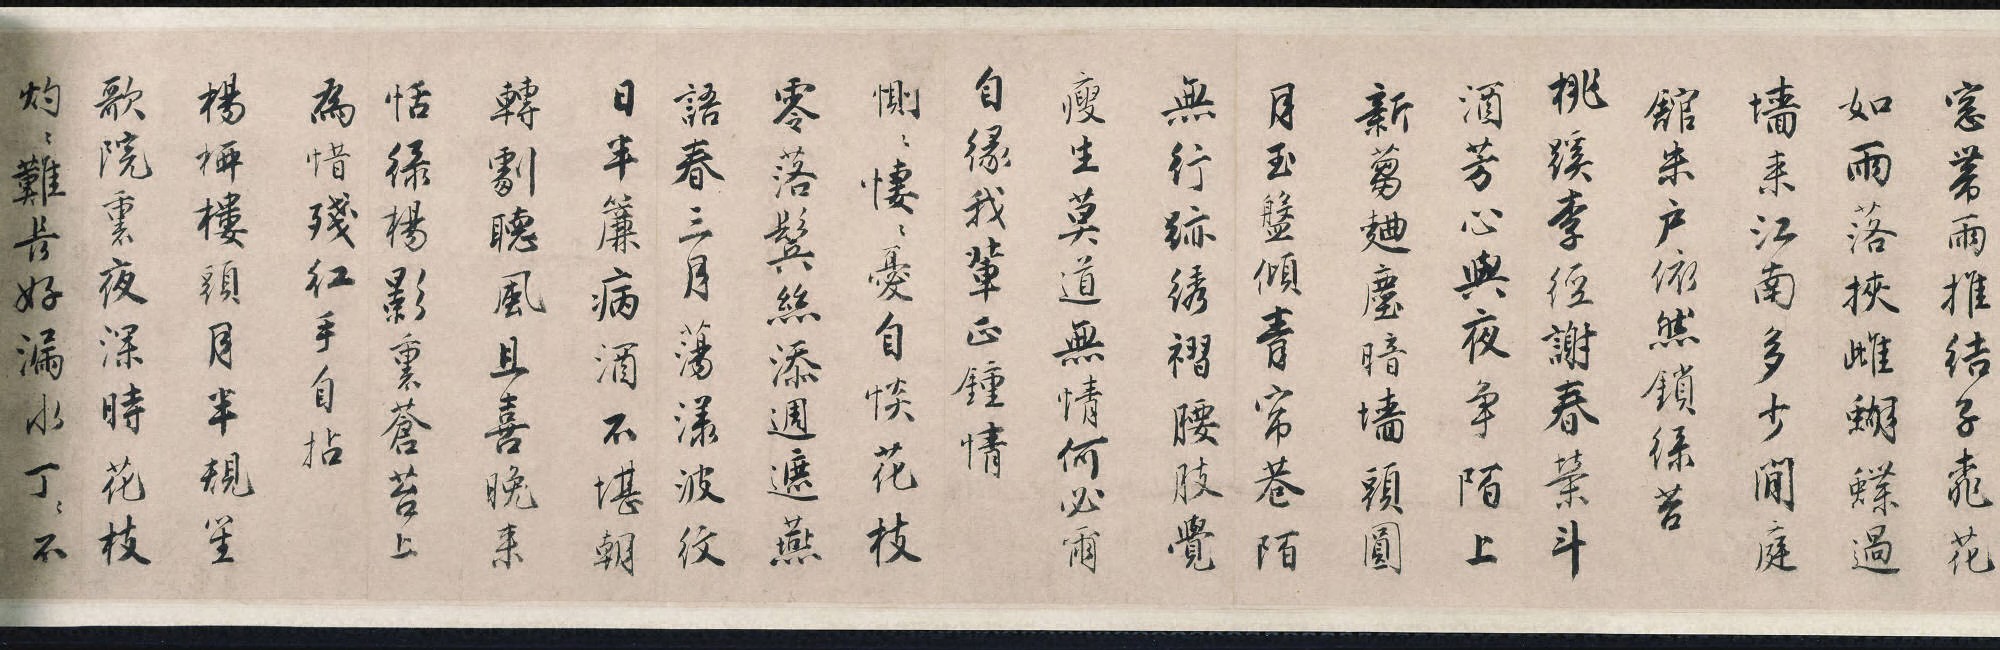 窓帶雨推結子桃花
如雨落挾雌蝴蝶過
墻來江南多少閒庭
館朱戶依然鎖綠苔
桃蹊李徑謝春榮斗
酒芳心與夜爭陌上
新蒭麯塵暗墻頭圓
月玉盤傾青帘巷陌
無行跡綉褶腰肢覺
瘦生莫道無情何必爾
自緣我輩正鍾情
惻〻悽〻憂自惔花枝
零落鬓絲添週遮燕
語春三月蕩漾波紋
日半簾病酒不堪朝
轉劇聽風且喜晚來
恬綠楊影裏蒼苔上
為惜殘紅手自拈
楊柳樓頭月半規笙
歌院裏夜深時花枝
灼〻難長好漏水丁〻不